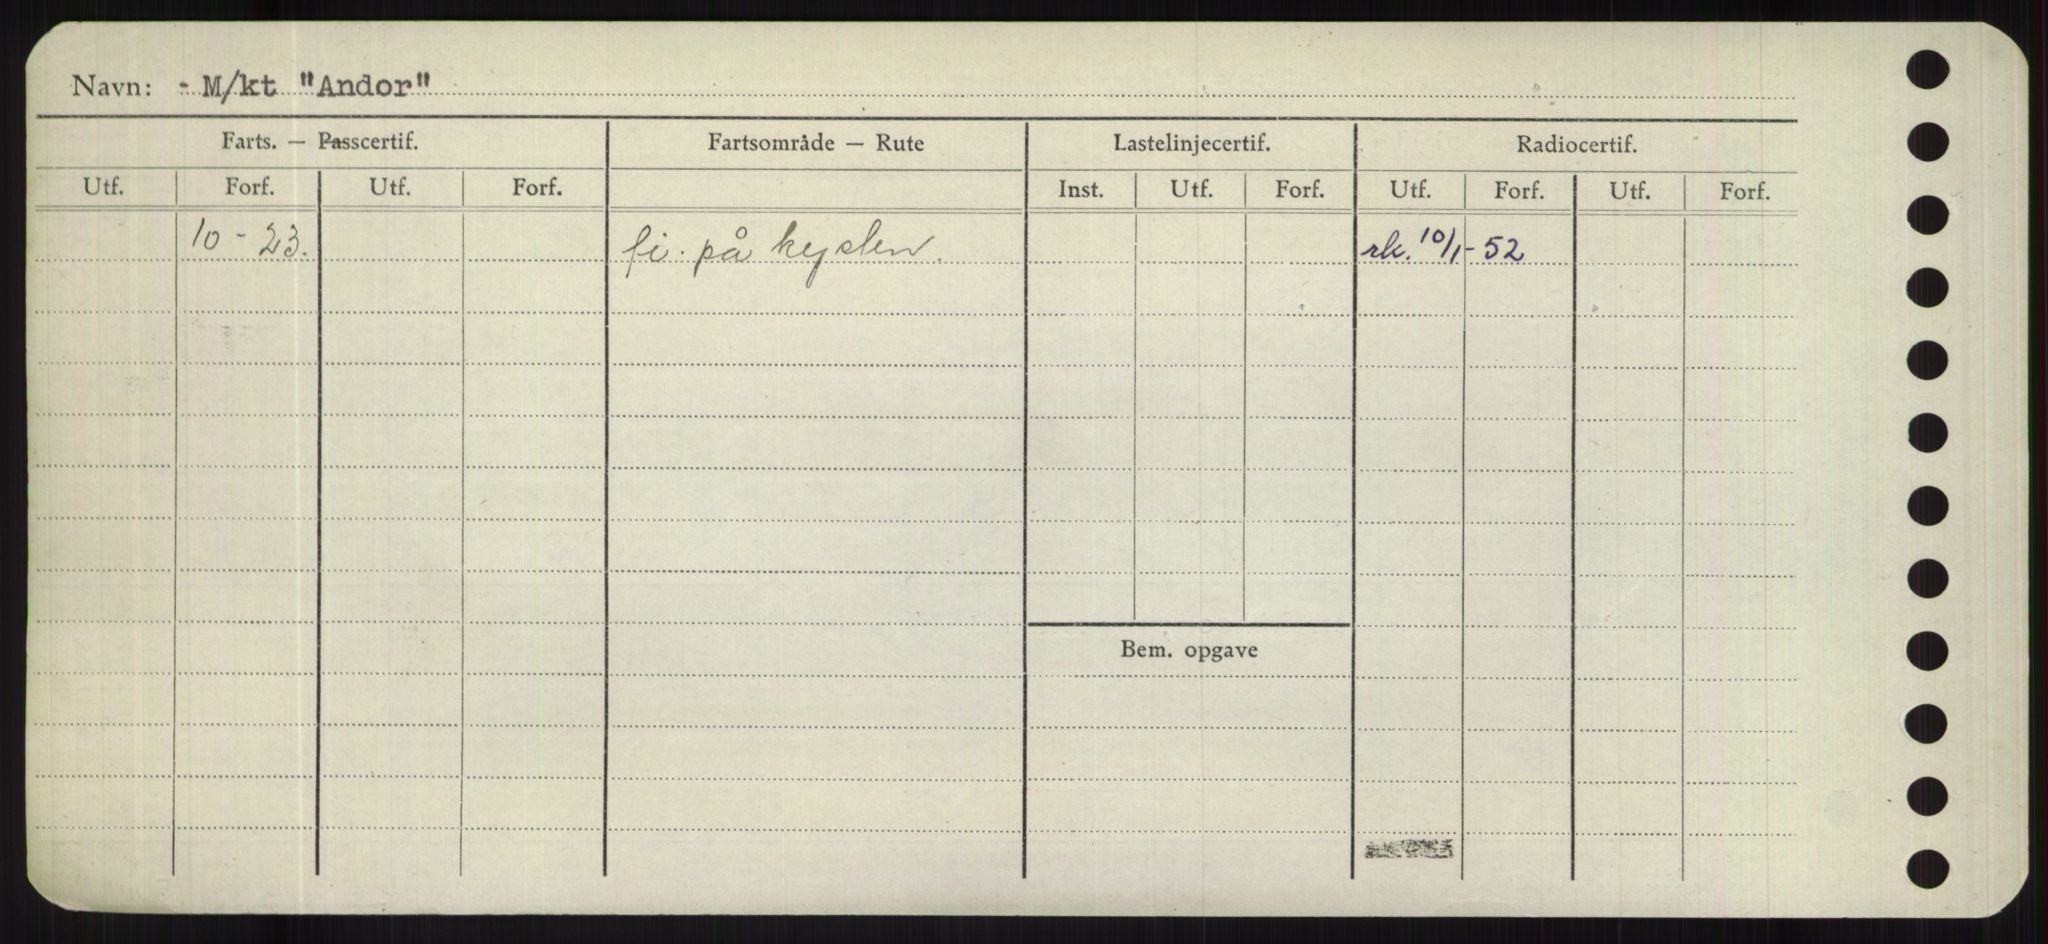 Navn: - M/kt "Andor"
Farts. — Passcertif. Fartsområde — Rute Lastelinjecertif. Radiocertif.
Utf. Forf. Utf. Forf. Inst. Utf. Forf. Utf. Forf. Utf. Forf.
10 - 23. fi. på kysten. rk. 10/1 - 52
Bem. opgave